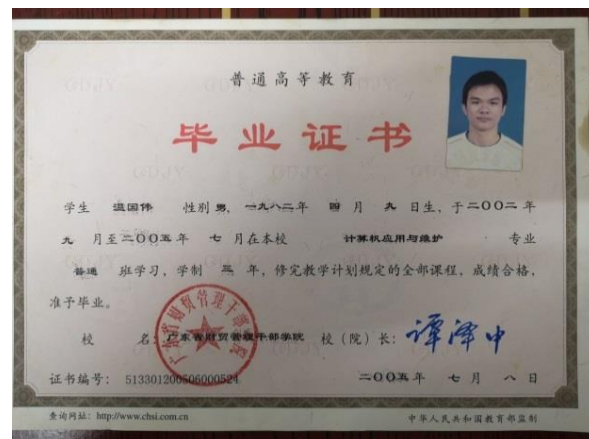 普通高等教育
毕业证书
学生 温国伟 性别 男, 一九八二年 四 月 九 日生, 于二〇〇二 年
九 月至二〇〇五 年 七 月在本校 计算机应用与维护 专业
普通 班学习, 学制 三 年, 修完教学计划规定的全部课程, 成绩合格,
准予毕业。
校 名: 广东省财贸管理干部学院 校（院）长: 谭泽中
广东省财贸管理干部学院
证书编号: 513301200506000524 二〇〇五 年 七 月 八 日
查询网址: http://www.chsi.com.cn 中华人民共和国教育部监制